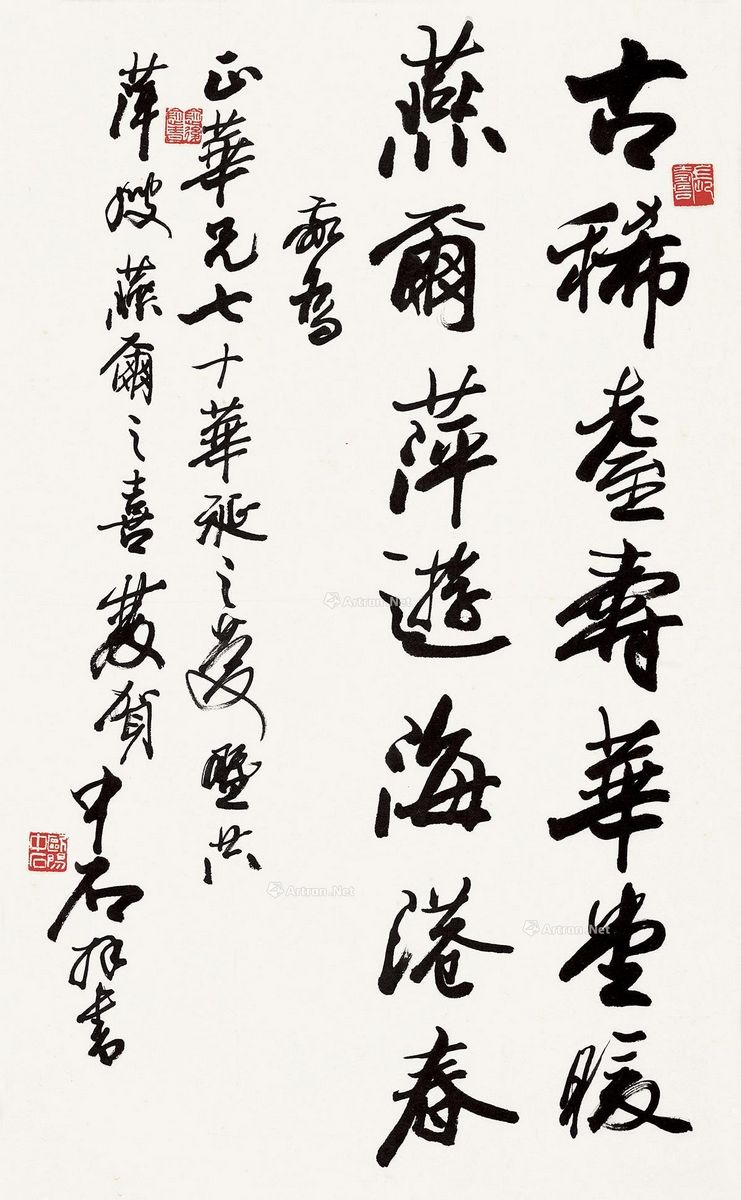 古稀耋壽華堂暖
燕爾萍遊海港春
敬為
正華兄七十華誕之慶暨共
萍嫂燕爾之喜雙賀中石拜書
長壽
歐陽中石
Artron.Net
Artron.Net
Artron.Net